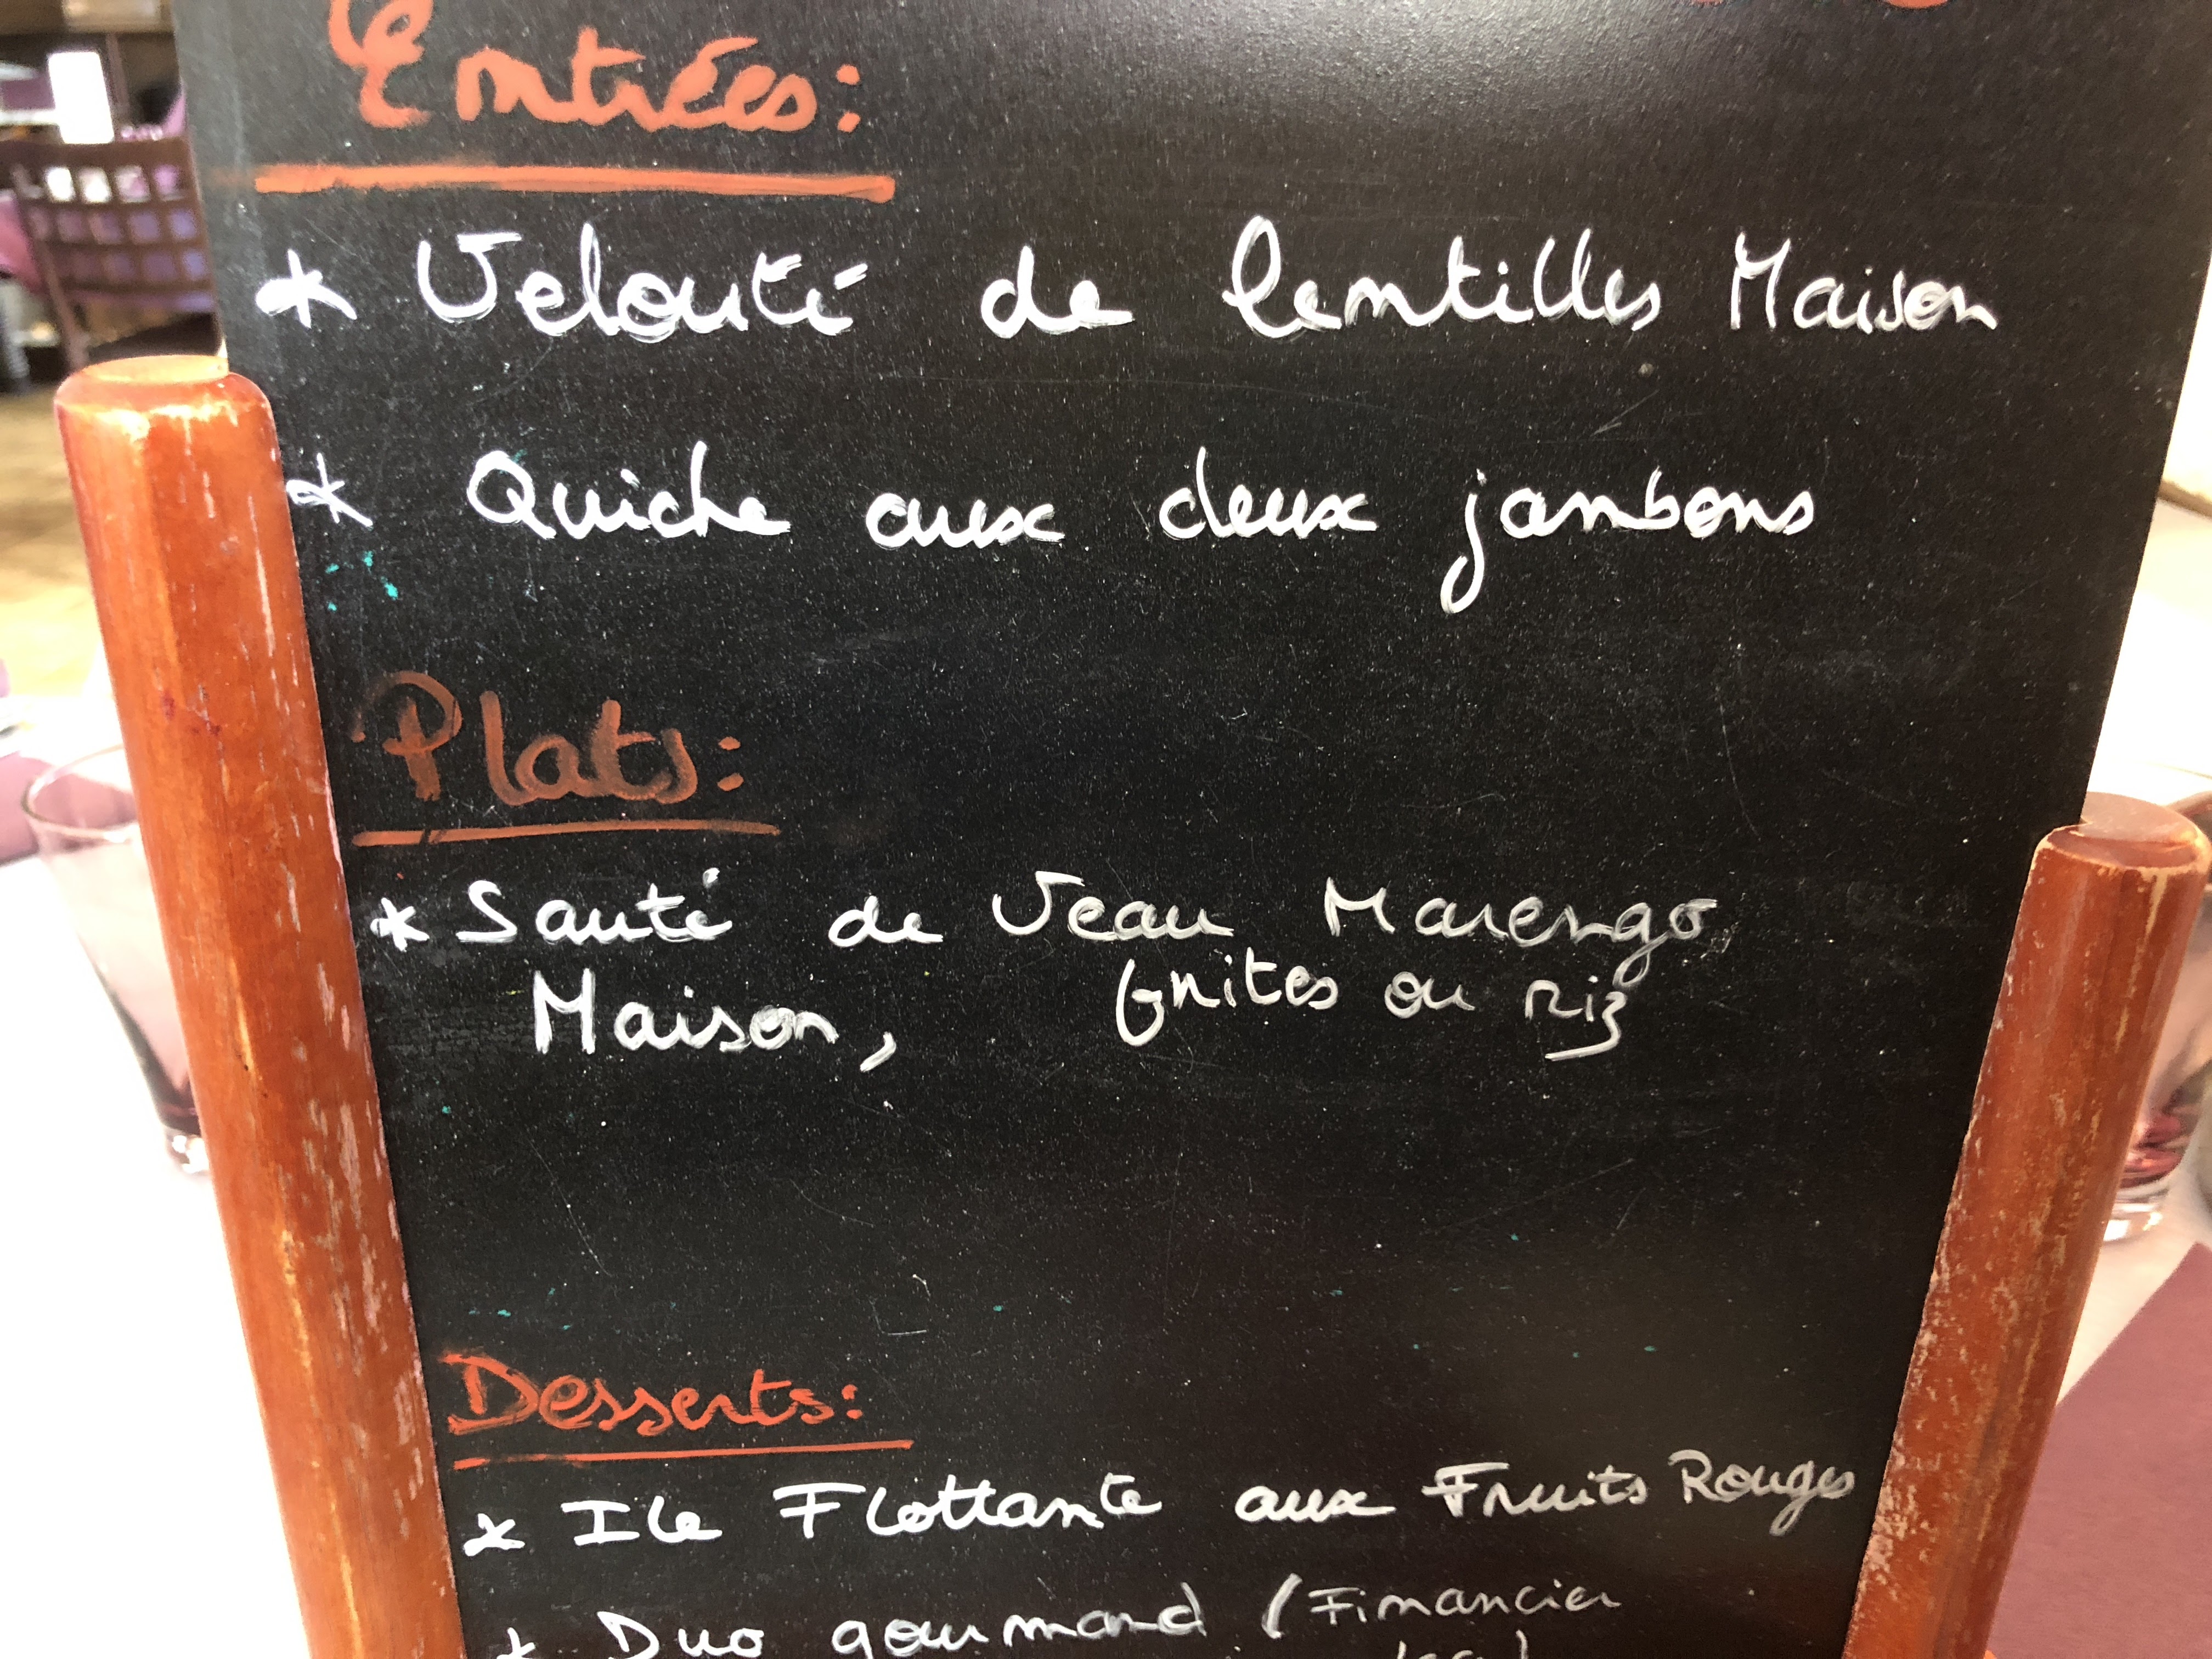 Entrées:
* Velouté de lentilles Maison
* Quiche aux deux jambons
Plats:
* Sauté de Veau Marengo
Maison, frites ou riz
Desserts:
* Ile Flottante aux Fruits Rouges
* Duo gourmand (Financier